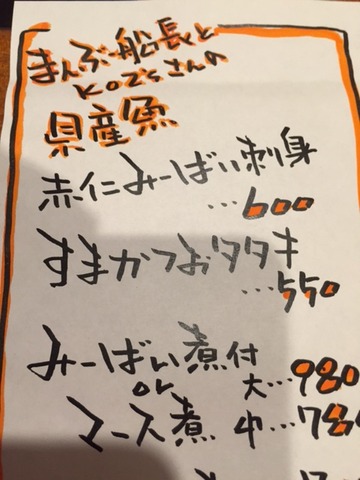 まんぶ船長と
KOZ'sさんの
県産魚
赤仁みーばい刺身
…600
すまかつおタタキ
…550
みーばい煮付
or 大…980
マース煮 中…780